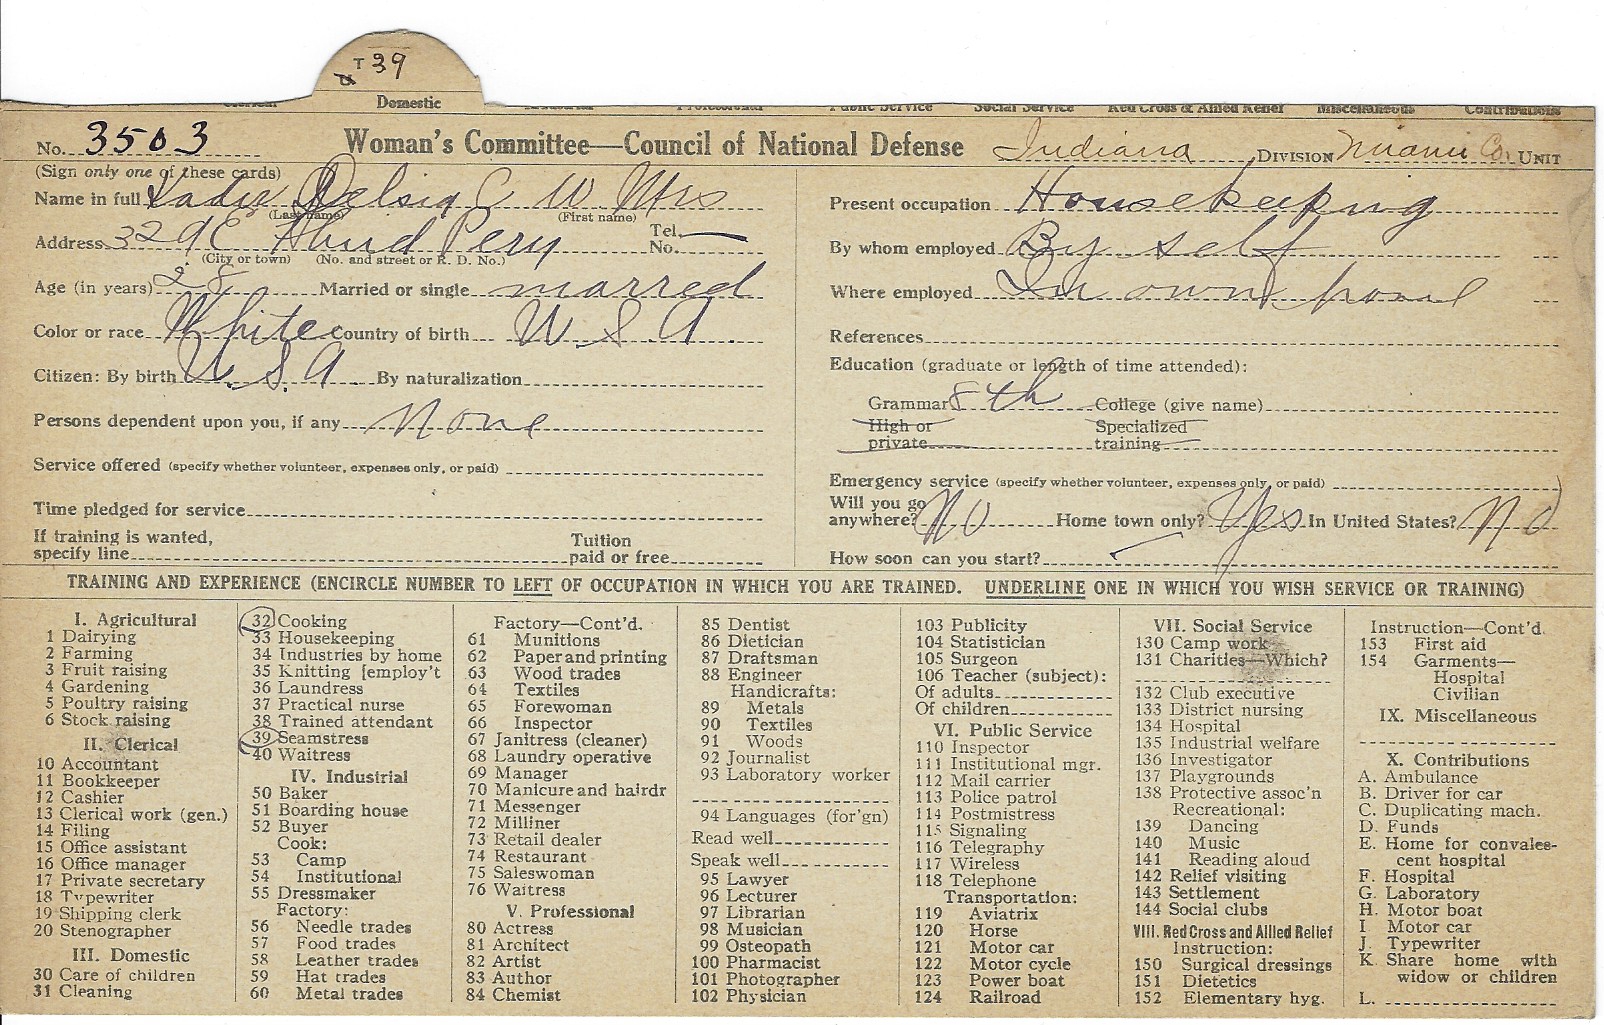 T 39
Domestic
Public Service Social Service Red Cross & Allied Relief Miscellaneous Contributions
No. 3503 Woman's Committee—Council of National Defense Indiana DIVISION Miami Co. UNIT
(Sign only one of these cards)
Name in full C W Mrs
(Last name) (First name)
Address 329 E Tel. No.
(City or town) (No. and street or R. D. No.)
Age (in years) 28 Married or single marred
Color or race White Country of birth U S A
Citizen: By birth U.S.A By naturalization
Persons dependent upon you, if any None
Service offered (specify whether volunteer, expenses only, or paid)
Time pledged for service
If training is wanted, specify line Tuition paid or free
Present occupation Housekeeping
By whom employed By self
Where employed In own
References
Education (graduate or length of time attended):
Grammar 8th College (give name)
High or private Specialized training
Emergency service (specify whether volunteer, expenses only, or paid)
Will you go anywhere? No Home town only? Yes In United States? No
How soon can you start?
TRAINING AND EXPERIENCE (ENCIRCLE NUMBER TO LEFT OF OCCUPATION IN WHICH YOU ARE TRAINED. UNDERLINE ONE IN WHICH YOU WISH SERVICE OR TRAINING)
I. Agricultural
1 Dairying
2 Farming
3 Fruit raising
4 Gardening
5 Poultry raising
6 Stock raising
II. Clerical
10 Accountant
11 Bookkeeper
12 Cashier
13 Clerical work (gen.)
14 Filing
15 Office assistant
16 Office manager
17 Private secretary
18 Typewriter
19 Shipping clerk
20 Stenographer
III. Domestic
30 Care of children
31 Cleaning
32 Cooking
33 Housekeeping
34 Industries by home
35 Knitting [employ't
36 Laundress
37 Practical nurse
38 Trained attendant
39 Seamstress
40 Waitress
IV. Industrial
50 Baker
51 Boarding house
52 Buyer
Cook:
53 Camp
54 Institutional
55 Dressmaker
Factory:
56 Needle trades
57 Food trades
58 Leather trades
59 Hat trades
60 Metal trades
Factory—Cont'd.
61 Munitions
62 Paper and printing
63 Wood trades
64 Textiles
65 Forewoman
66 Inspector
67 Janitress (cleaner)
68 Laundry operative
69 Manager
70 Manicure and hairdr
71 Messenger
72 Milliner
73 Retail dealer
74 Restaurant
75 Saleswoman
76 Waitress
V. Professional
80 Actress
81 Architect
82 Artist
83 Author
84 Chemist
85 Dentist
86 Dietician
87 Draftsman
88 Engineer
Handicrafts:
89 Metals
90 Textiles
91 Woods
92 Journalist
93 Laboratory worker
94 Languages (for'gn)
Read well
Speak well
95 Lawyer
96 Lecturer
97 Librarian
98 Musician
99 Osteopath
100 Pharmacist
101 Photographer
102 Physician
103 Publicity
104 Statistician
105 Surgeon
106 Teacher (subject):
Of adults
Of children
VI. Public Service
110 Inspector
111 Institutional mgr.
112 Mail carrier
113 Police patrol
114 Postmistress
115 Signaling
116 Telegraphy
117 Wireless
118 Telephone
Transportation:
119 Aviatrix
120 Horse
121 Motor car
122 Motor cycle
123 Power boat
124 Railroad
VII. Social Service
130 Camp work
131 Charities—Which?
132 Club executive
133 District nursing
134 Hospital
135 Industrial welfare
136 Investigator
137 Playgrounds
138 Protective assoc'n
Recreational:
139 Dancing
140 Music
141 Reading aloud
142 Relief visiting
143 Settlement
144 Social clubs
VIII. Red Cross and Allied Relief
Instruction:
150 Surgical dressings
151 Dietetics
152 Elementary hyg.
Instruction—Cont'd.
153 First aid
154 Garments—
Hospital
Civilian
IX. Miscellaneous
X. Contributions
A. Ambulance
B. Driver for car
C. Duplicating mach.
D. Funds
E. Home for convales-
cent hospital
F. Hospital
G. Laboratory
H. Motor boat
I. Motor car
J. Typewriter
K. Share home with
widow or children
L.